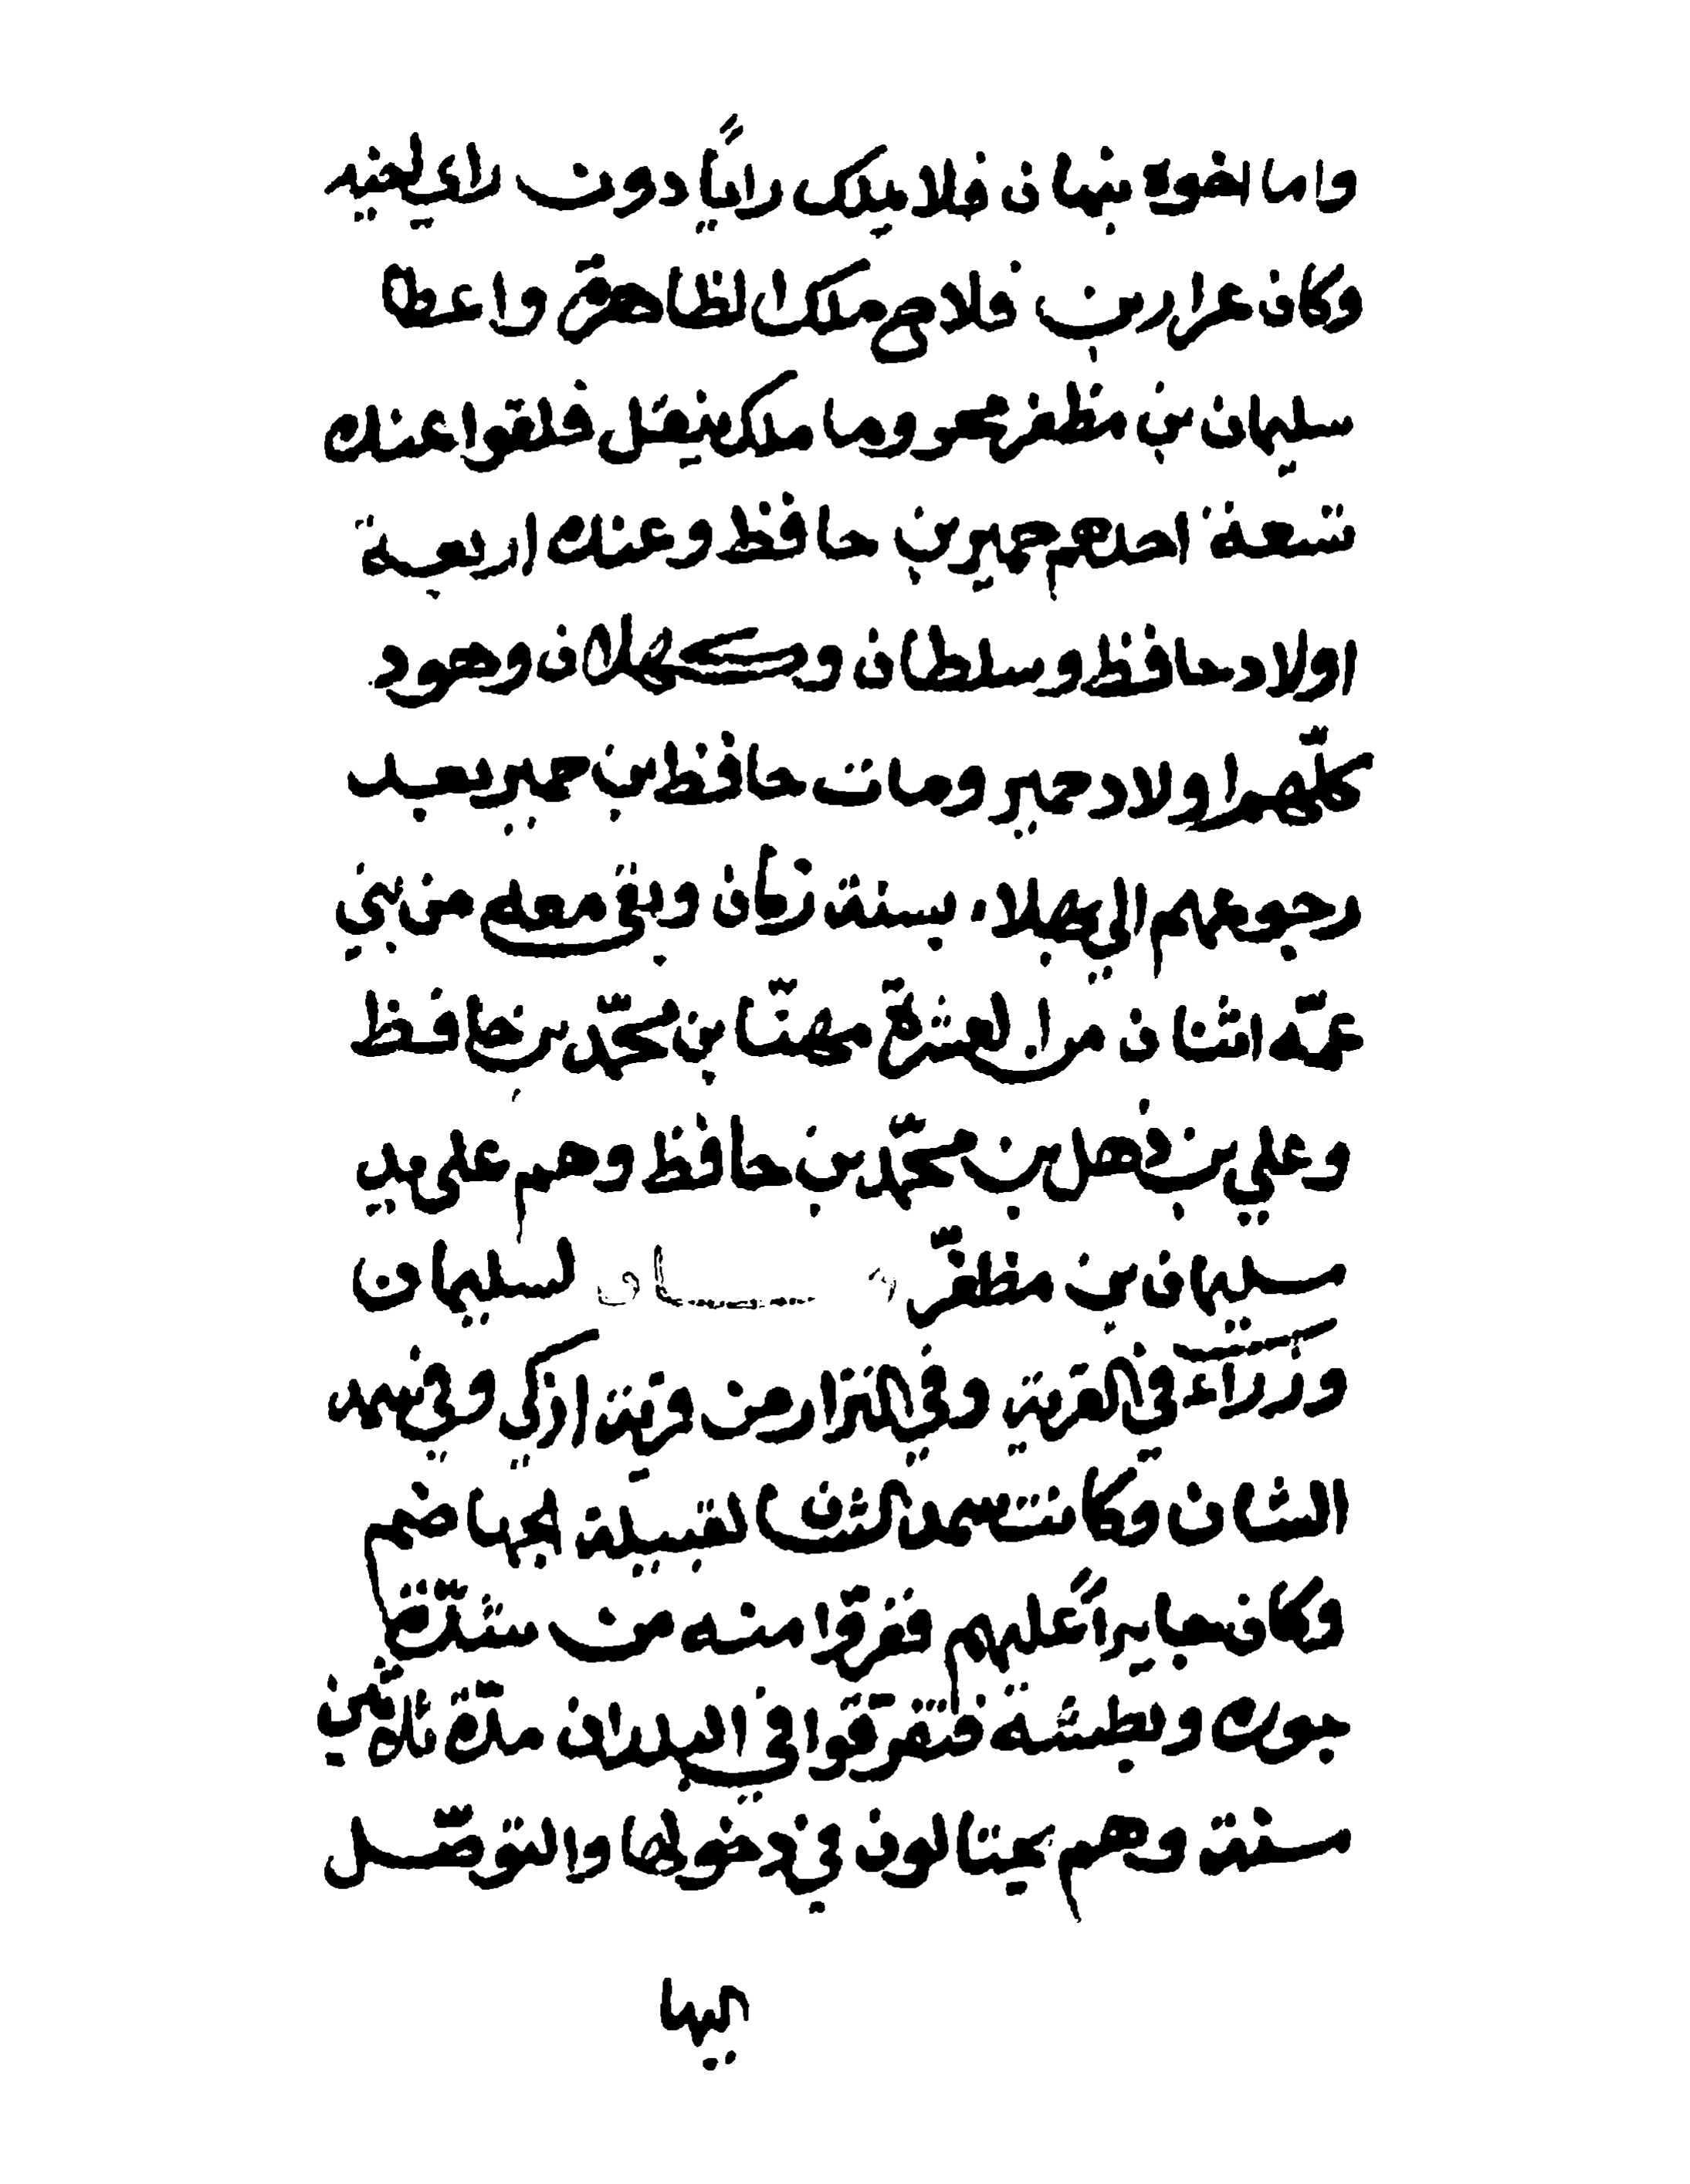 واما اخوه نبهان فلا يملك راياً دون راي اخيه
وكان عرار بن فلاح ملك الظاهرة واعطا
سليمان بن مظفر نحو وما ملك ينقل فلقوا عنك
تسعة احدهم حمير بن حافظ وعنك اربعة
اولاد حافظ وسلطان وكهلان وهود
كلّهم اولاد حمير ومات حافظ بن حمير بعد
رجوعهم الي بهلاء بسنة زمان وبقي معه من بني
عمّه اثنان من العشرة مهنّا بن محمّد بن حافظ
وعلي بن ذهل بن محمّد بن حافظ وهم علي يد
سليمان بن مظفّر لسليمان
وزراء في القرية وفي النزار من قرية ازكي وفي سمد
الشان وكانت سمد الشان لقبيلة الجهاضم
وكان جايراً عليهم ففرقوا منه من شدّة
جوره وبطشه فتفرقوا في البلدان مدّة ثلاثين
سنة وهم يحتالون في دخولها والتوصّل
اليها